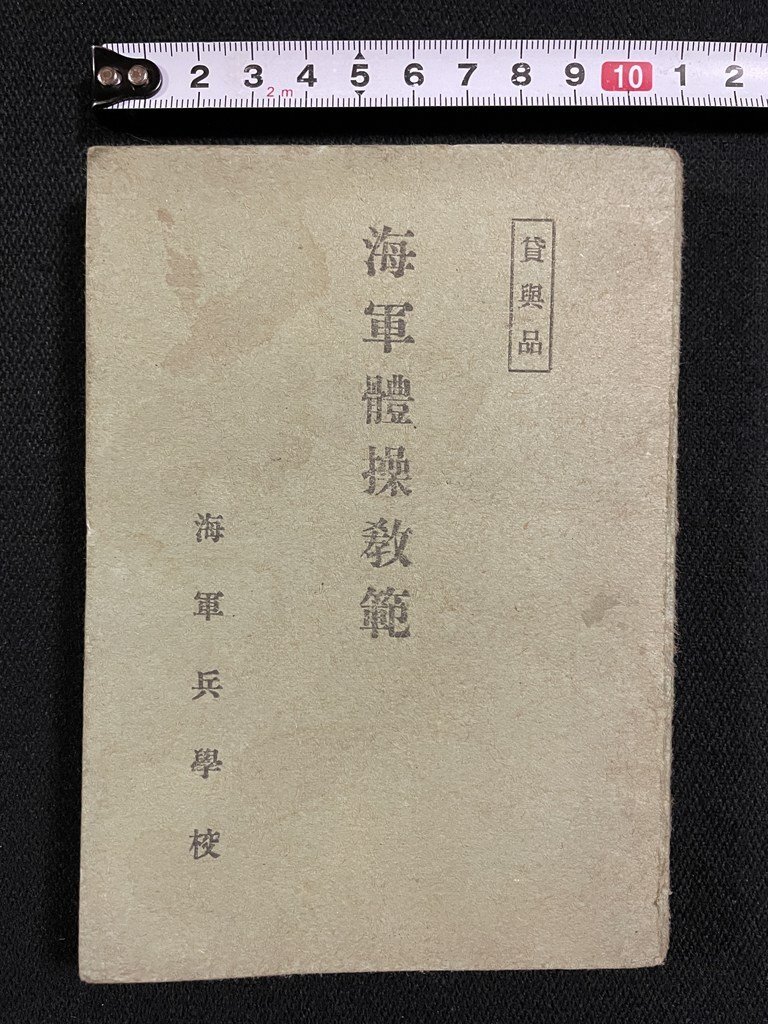 2 3 4 5 6 7 8 9 10 1 2
2 m
貸與品
海軍體操教範
海軍兵學校